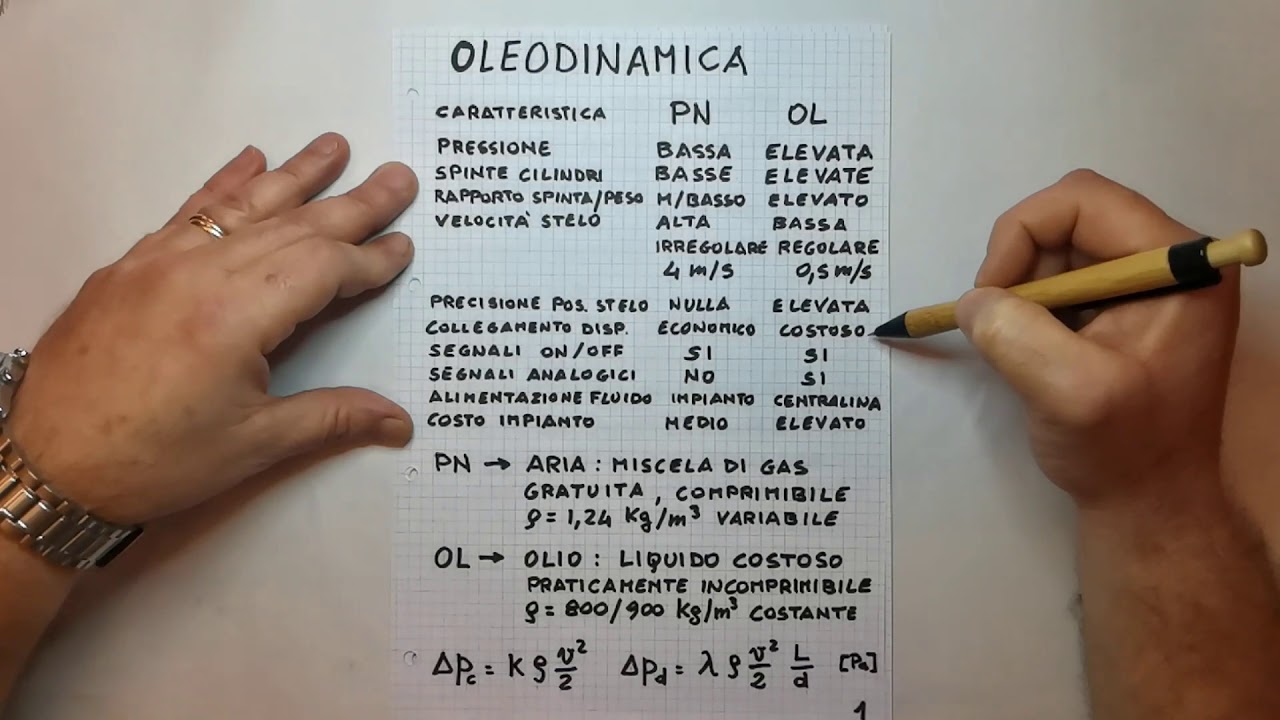 OLEODINAMICA
CARATTERISTICA PN OL
PRESSIONE BASSA ELEVATA
SPINTE CILINDRI BASSE ELEVATE
RAPPORTO SPINTA/PESO M/BASSO ELEVATO
VELOCITÀ STELO ALTA BASSA
IRREGOLARE REGOLARE
4 m/s 0,5 m/s
PRECISIONE POS. STELO NULLA ELEVATA
COLLEGAMENTO DISP. ECONOMICO COSTOSO
SEGNALI ON/OFF SI SI
SEGNALI ANALOGICI NO SI
ALIMENTAZIONE FLUIDO IMPIANTO CENTRALINA
COSTO IMPIANTO MEDIO ELEVATO
PN → ARIA : MISCELA DI GAS
GRATUITA, COMPRIMIBILE
ρ = 1,24 Kg/m³ VARIABILE
OL → OLIO : LIQUIDO COSTOSO
PRATICAMENTE INCOMPRIMIBILE
ρ = 800/900 kg/m³ COSTANTE
Δpc = K ρ v²/2 Δpd = λ ρ v²/2 L/d [Pa]
1